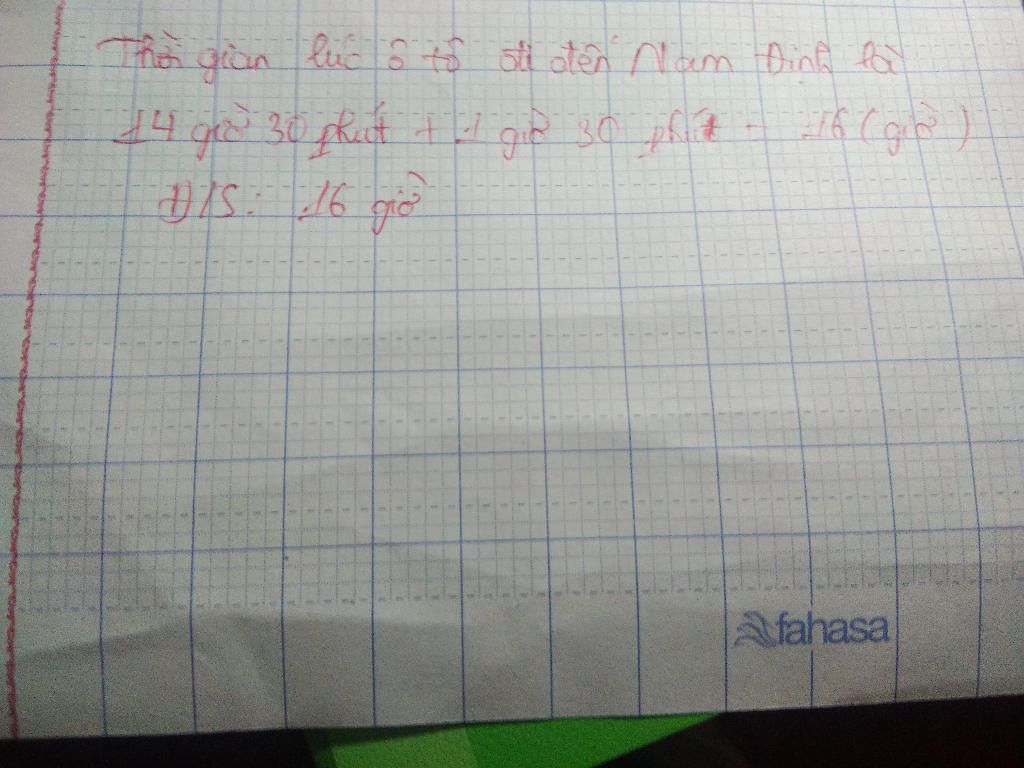 Thời gian lúc ô tô đi đến Nam Định là
14 giờ 30 phút + 1 giờ 30 phút = 16 (giờ)
Đ/S: 16 giờ
fahasa